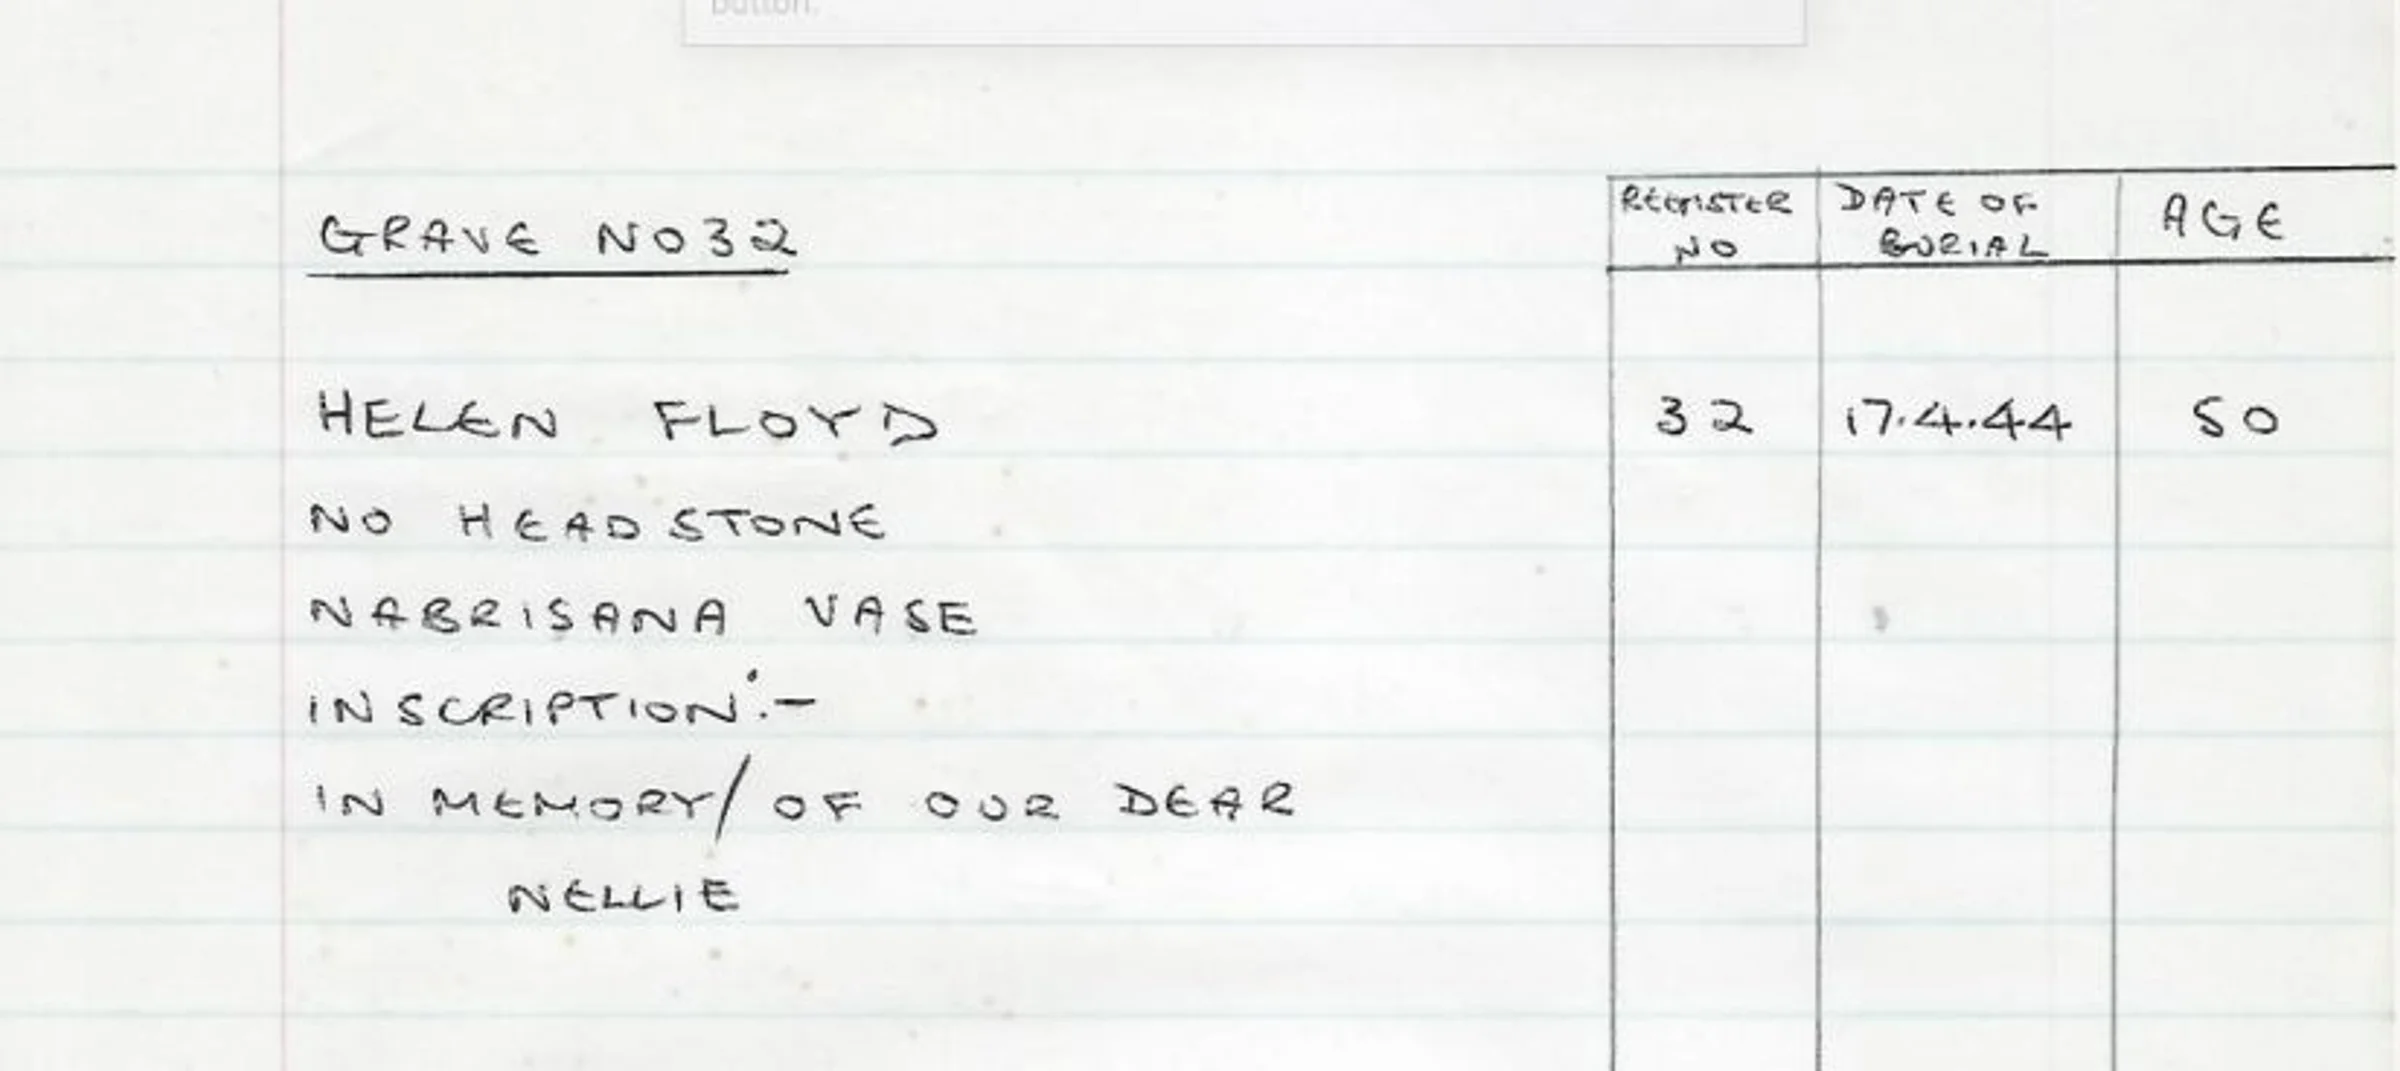 button.
GRAVE NO 32
REGISTER NO
DATE OF BURIAL
AGE
HELEN FLOYD
32
17.4.44
50
NO HEADSTONE
NABRISANA VASE
INSCRIPTION:-
IN MEMORY/ OF OUR DEAR
NELLIE